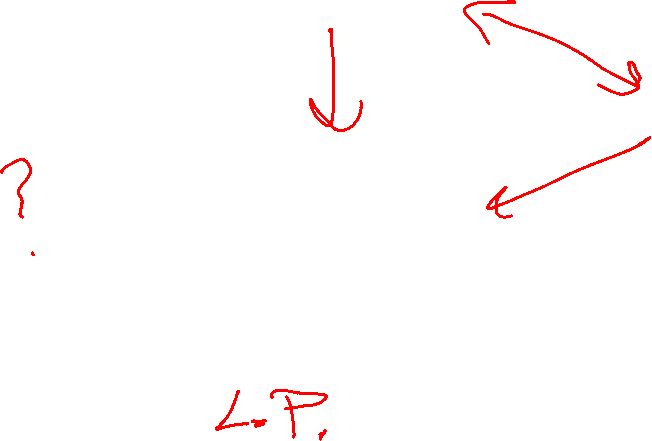 ?
L.P.